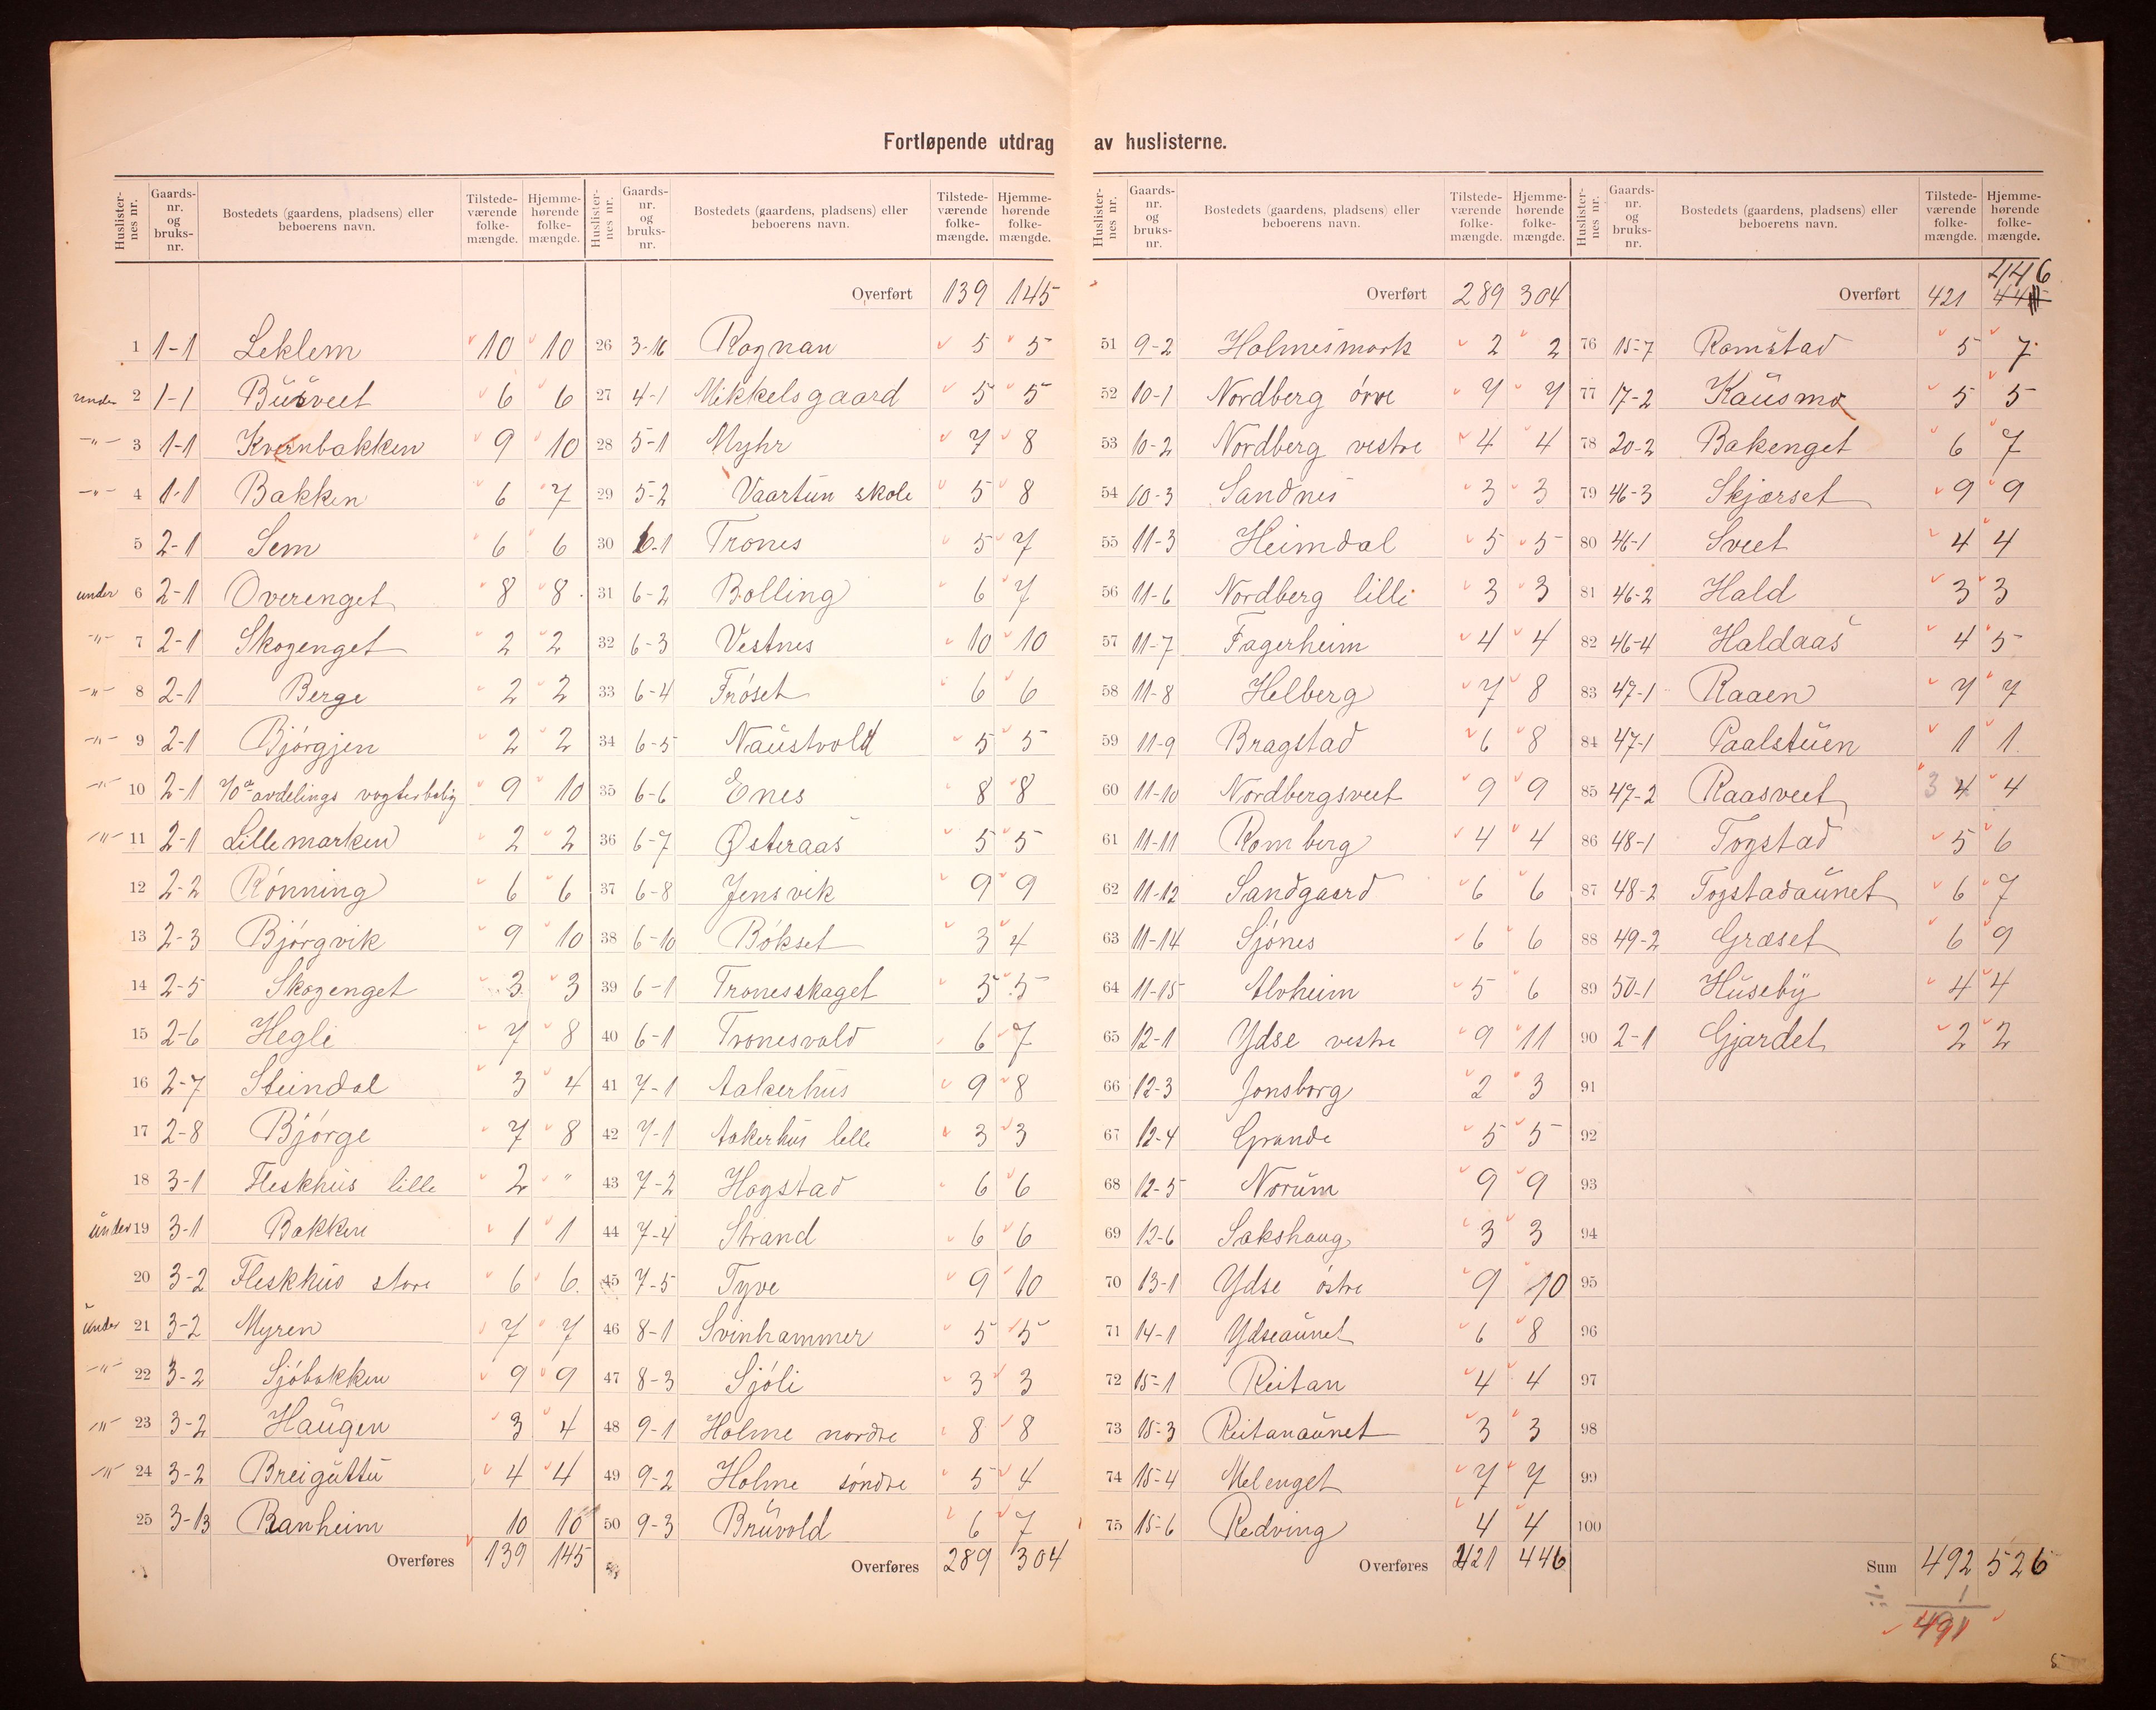 Fortløpende utdrag av huslisterne.
Huslisternes nr. Gaards-nr. og bruks-nr. Bostedets (gaardens, pladsens) eller beboerens navn. Tilstede-værende folke-mængde. Hjemme-hørende folke-mængde.
1 1-1 Leklem 10 10
under 2 1-1 Buusveet 6 6
-"- 3 1-1 Kvernbakken 9 10
-"- 4 1-1 Bakken 6 7
5 2-1 Sem 6 6
under 6 2-1 Overenget 8 8
-"- 7 2-1 Skogenget 2 2
-"- 8 2-1 Berge 2 2
-"- 9 2-1 Bjórgjen 2 2
-"- 10 2-1 avdelings vogterbolig 9 10
-"- 11 2-1 Lillemarken 2 2
12 2-2 Rónning 6 6
13 2-3 Bjórgvik 9 10
14 2-5 Skogenget 3 3
15 2-6 Hegli 7 8
16 2-7 Steindal 3 4
17 2-8 Bjórge 7 8
18 3-1 Fleskhus lille 2 "
under 19 3-1 Bakken 1 1
20 3-2 Fleskhus store 6 6
under 21 3-2 Myren 7 7
-"- 22 3-2 Sjóbakken 9 9
-"- 23 3-2 Haugen 3 4
-"- 24 3-2 Breiguttu 4 4
25 3-13 Ranheim 10 10
Overføres 139 145
Huslisternes nr. Gaards-nr. og bruks-nr. Bostedets (gaardens, pladsens) eller beboerens navn. Tilstede-værende folke-mængde. Hjemme-hørende folke-mængde.
Overført 139 145
26 3-16 Rognan 5 5
27 4-1 Mikkelsgaard 5 5
28 5-1 Myhr 7 8
29 5-2 Vaartun skole 5 8
30 6-1 Trones 5 7
31 6-2 Bolling 6 7
32 6-3 Vestnes 10 10
33 6-4 Fróset 6 6
34 6-5 Naustvold 5 5
35 6-6 Enes 8 8
36 6-7 Østeraas 5 5
37 6-8 Jensvik 9 9
38 6-10 Bókset 3 4
39 6-1 Tronesskaget 5 5
40 6-1 Tronesvold 6 7
41 7-1 Aakerhus 9 8
42 7-1 Aakerhus lille 3 3
43 7-2 Hogstad 6 6
44 7-4 Strand 6 6
45 7-5 Tyve 9 10
46 8-1 Svinhammer 5 5
47 8-3 Sjóli 3 3
48 9-1 Holme nordre 8 8
49 9-2 Holme sóndre 5 4
50 9-3 Bruvold 6 7
Overføres 289 304
Huslisternes nr. Gaards-nr. og bruks-nr. Bostedets (gaardens, pladsens) eller beboerens navn. Tilstede-værende folke-mængde. Hjemme-hørende folke-mængde.
Overført 289 304
51 9-2 Holmesmark 2 2
52 10-1 Nordberg óvre 7 7
53 10-2 Nordberg vestre 4 4
54 10-3 Sandnes 3 3
55 11-3 Heimdal 5 5
56 11-6 Nordberg lille 3 3
57 11-7 Fagerheim 4 4
58 11-8 Helberg 7 8
59 11-9 Bragstad 6 8
60 11-10 Nordbergsveet 9 9
61 11-11 Romberg 4 4
62 11-12 Sandgaard 6 6
63 11-14 Sjónes 6 6
64 11-15 Alvheim 5 6
65 12-1 Ydse vestre 9 11
66 12-3 Jonsborg 2 3
67 12-4 Grande 5 5
68 12-5 Norum 9 9
69 12-6 Sakshaug 3 3
70 13-1 Ydse óstre 9 10
71 14-1 Ydseaunet 6 8
72 15-1 Reitan 4 4
73 15-3 Reitanaunet 3 3
74 15-4 Melenget 7 7
75 15-6 Redving 4 4
Overføres 421 446
Huslisternes nr. Gaards-nr. og bruks-nr. Bostedets (gaardens, pladsens) eller beboerens navn. Tilstede-værende folke-mængde. Hjemme-hørende folke-mængde.
446
Overført 421
76 15-7 Ramstad 5 7
77 17-2 Kausmo 5 5
78 20-2 Bakenget 6 7
79 46-3 Skjørset 9 9
80 46-1 Sveet 4 4
81 46-2 Hald 3 3
82 46-4 Haldaas 4 5
83 47-1 Raaen 7 7
84 47-1 Paalstuen 1 1
85 47-2 Raasveet 3 4 4
86 48-1 Togstad 5 6
87 48-2 Togstadaunet 6 7
88 49-2 Græset 6 9
89 50-1 Huseby 4 4
90 2-1 Gjærdet 2 2
91
92
93
94
95
96
97
98
99
100
Sum 492 526
1
491